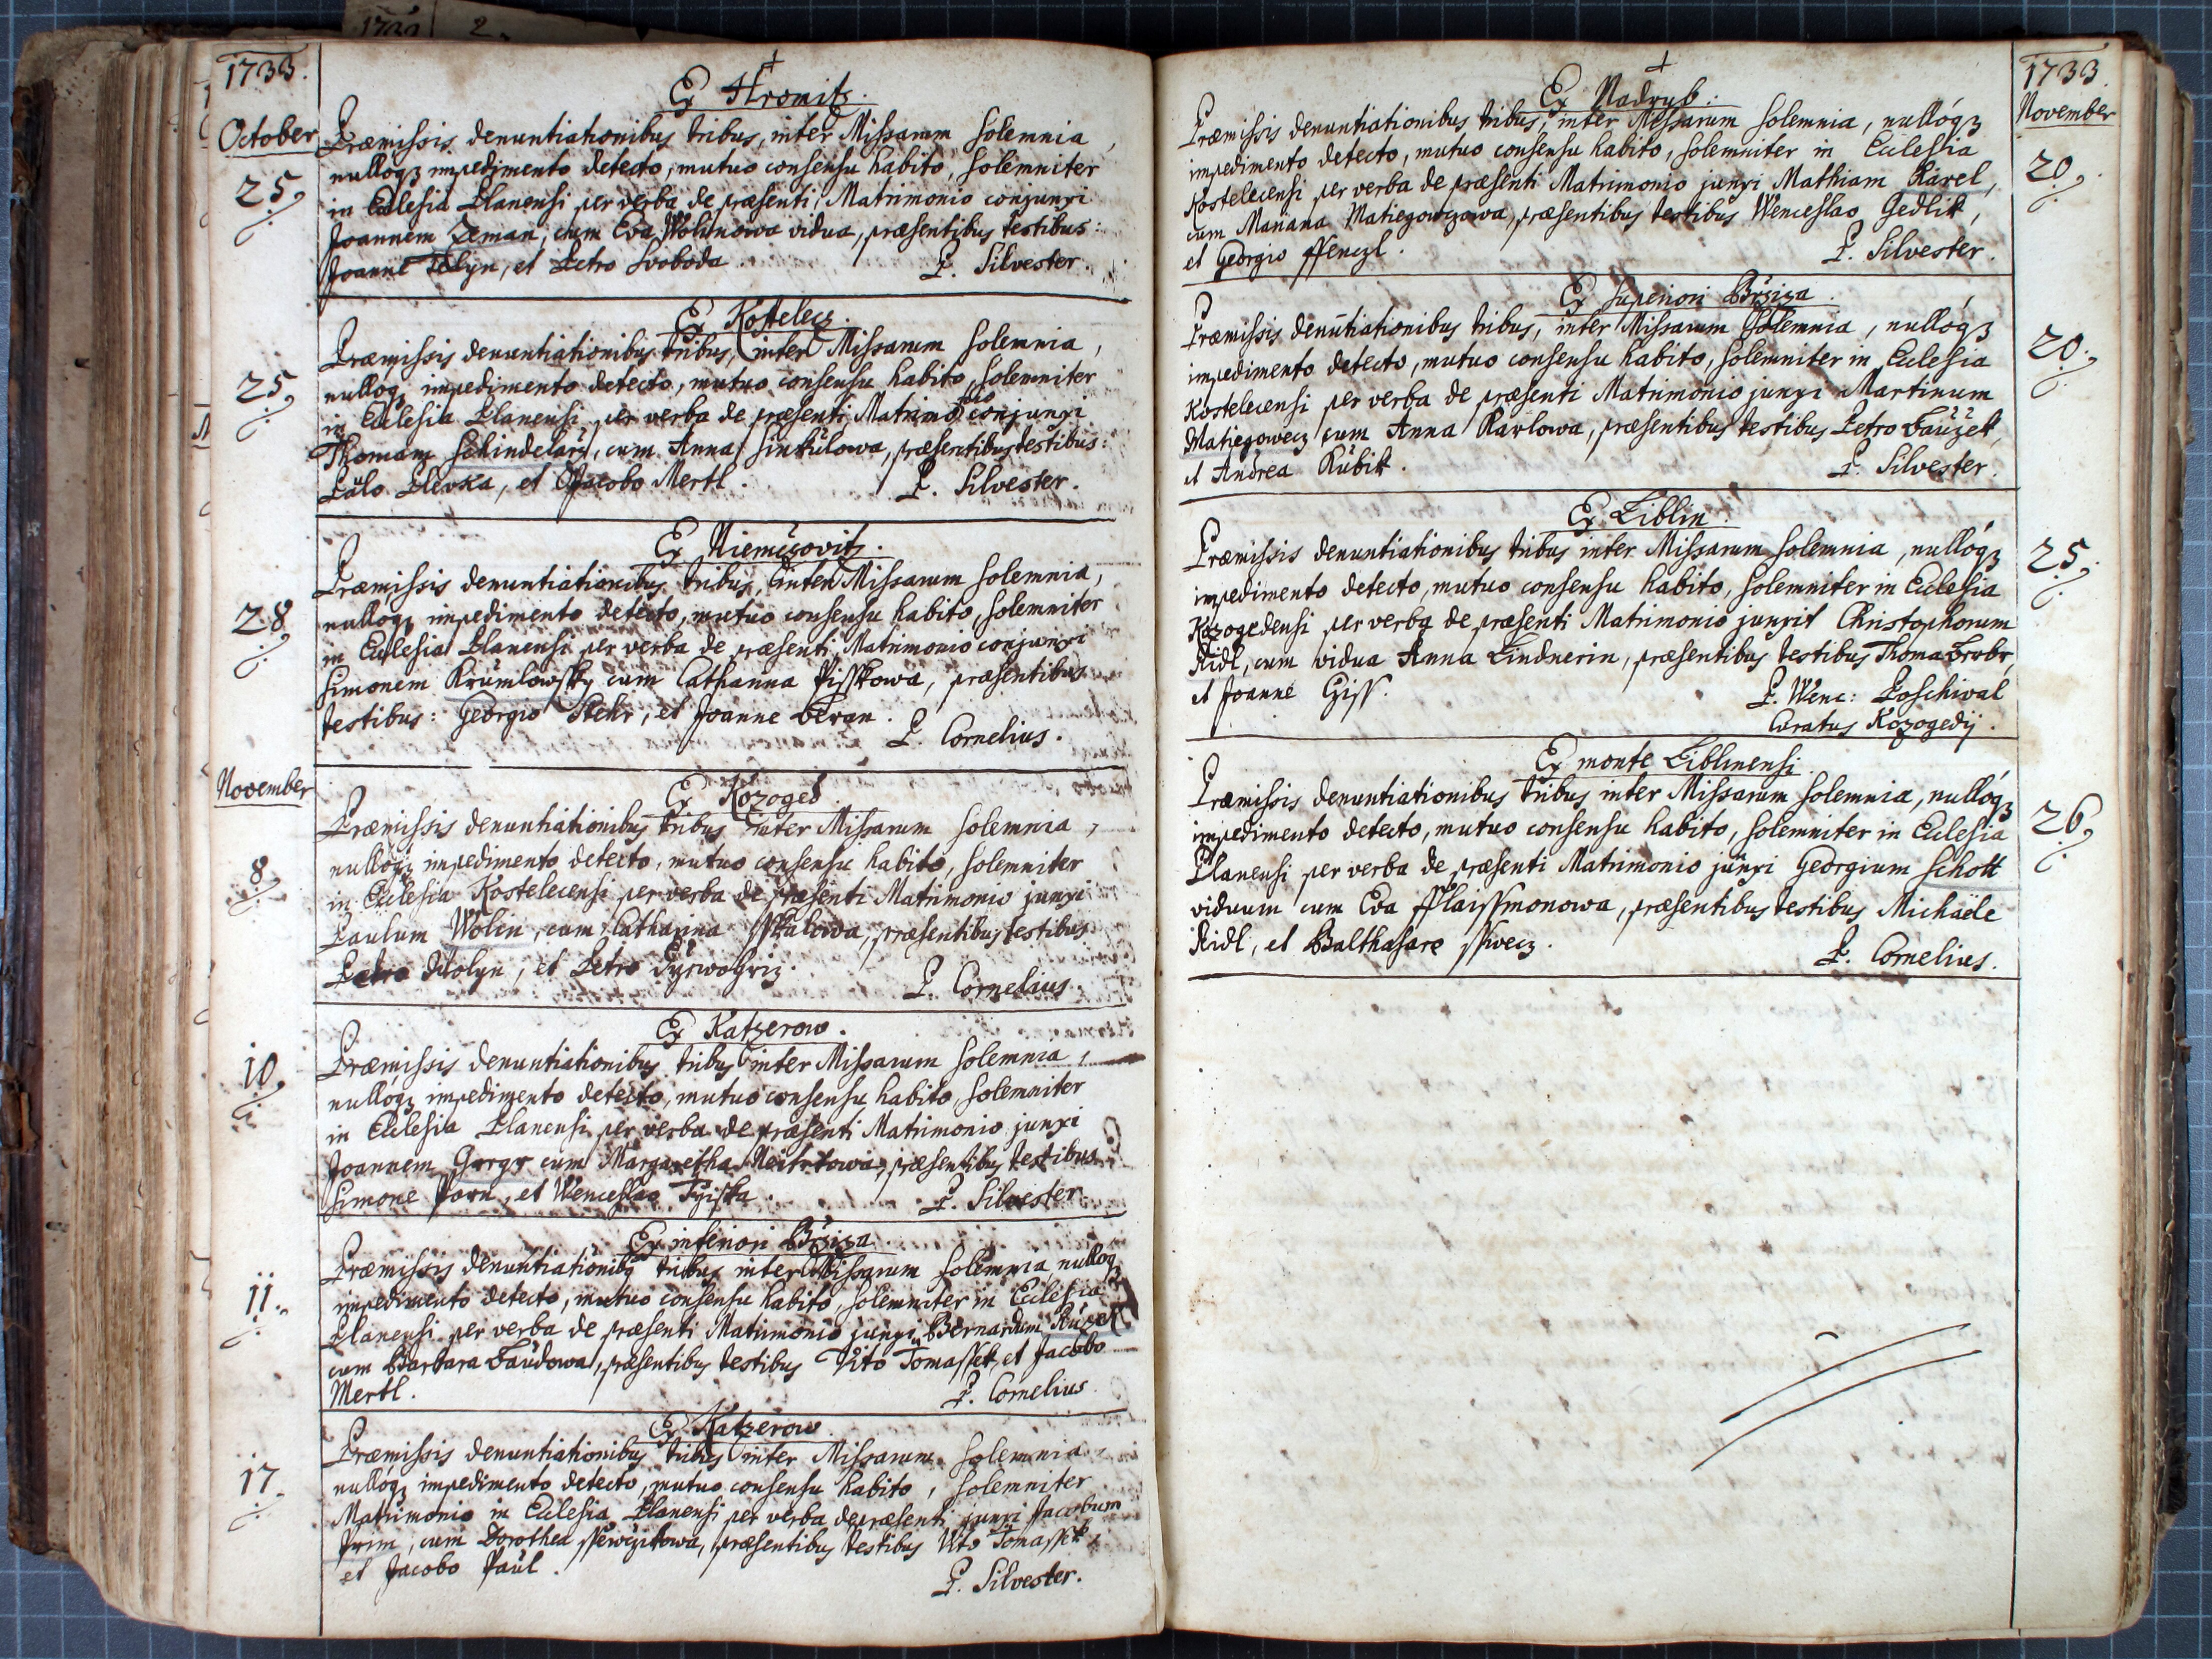 1733.
✝
Ex Hromitz.
October
25.
Præmissis denuntiationibus tribus, inter Missarum solemnia,
nullóq₃ impedimento detecto, mutuo consensu habito, solemniter
in Ecclesia Planensi per verba de præsenti Matrimonio conjunxi
Joannem Zeman, cum Eva Wolinowa vidua, præsentibus testibus:
Joanne, et Petro Svoboda. P. Silvester.
Ex Kostelecz.
25.
Præmissis denuntiationibus tribus, inter Missarum solemnia,
nullóq₃ impedimento detecto, mutuo consensu habito, solemniter
in Ecclesia Planensi per verba de præsenti Matrimonio conjunxi
Thomam Schindelarz, cum Anna Sinkulowa, præsentibus testibus:
Paulo Plevka, et Jacobo Mertl. P. Silvester.
Ex Niemczovitz.
28.
Præmissis denuntiationibus tribus, inter Missarum solemnia,
nullóq₃ impedimento detecto, mutuo consensu habito, solemniter
in Ecclesia Planensi per verba de præsenti Matrimonio conjunxi
Simonem Krumlowsky cum Catharina Pisskowa, præsentibus
testibus: Georgio Stehr, et Joanne Beran. P. Cornelius.
November
Ex Kozoged.
8.
Præmissis denuntiationibus tribus inter Missarum solemnia,
nullóq₃ impedimento detecto, mutuo consensu habito, solemniter
in Ecclesia Kostelecensi per verba de præsenti Matrimonio junxi
Paulum Wolin, cum Catharina Sskalowa, præsentibus testibus
Petro, et Petro P. Cornelius.
Ex Katzerow.
10.
Præmissis denuntiationibus tribus inter Missarum solemnia,
nullóq₃ impedimento detecto, mutuo consensu habito, solemniter
in Ecclesia Planensi per verba de præsenti Matrimonio junxi
Joannem cum Margaretha, præsentibus testibus
Simone, et Wenceslao P. Silvester.
Ex inferiori Brziza.
11.
Præmissis denuntiationibq tribus inter Missarum solemnia nullóq₃
impedimento detecto, mutuo consensu habito, solemniter in Ecclesia
Planensi per verba de præsenti Matrimonio junxi Bernardum
cum Barbara Baudowa, præsentibus testibus Vito Tomassek, et Jacobo
Mertl. P. Cornelius.
Ex Katzerow.
17.
Præmissis denuntiationibus tribus inter Missarum solemnia,
nullóq₃ impedimento detecto, mutuo consensu habito, solemniter
Matrimonio in Ecclesia Planensi per verba de præsenti junxi Jacobum
cum Dorothea, præsentibus testibus Vito Tomassek,
et Jacobo Paul. P. Silvester.
1733.
✝
Ex Nadryb.
November
20.
Præmissis denuntiationibus tribus, inter Missarum solemnia, nullóq₃
impedimento detecto, mutuo consensu habito, solemniter in Ecclesia
Kostelecensi per verba de præsenti Matrimonio junxi Mathiam Karel,
cum Mariana Matiegowczowa, præsentibus testibus Wenceslao Gedlik,
et Georgio ffenczl. P. Silvester.
Ex superiori Brziza.
20.
Præmissis denutiationibus tribus, inter Missarum solemnia, nullóq₃
impedimento detecto, mutuo consensu habito, solemniter in Ecclesia
Kostelecensi per verba de præsenti Matrimonio junxi Martinum
Matiegowecz cum Anna Karlowa, præsentibus testibus Petro Bauzek,
et Andrea Kubik. P. Silvester.
Ex Liblin.
25.
Præmissis denuntiationibus tribus inter Missarum solemnia, nullóq₃
impedimento detecto, mutuo consensu habito, solemniter in Ecclesia
Kozogedensi per verba de præsenti Matrimonio junxit Christophorum
Ridl, cum vidua Anna Lindnerin, præsentibus testibus Thoma
et Joanne P. Wenc: Poschival
Curatus Kozogedij.
Ex monte Liblinensi
26.
Præmissis denuntiationibus tribus inter Missarum solemnia, nullóq₃
impedimento detecto, mutuo consensu habito, solemniter in Ecclesia
Planensi per verba de præsenti Matrimonio junxi Georgium Schott
viduum cum Eva fflaissmonowa, præsentibus testibus Michaële
Ridl, et Balthasare sswecz. P. Cornelius.